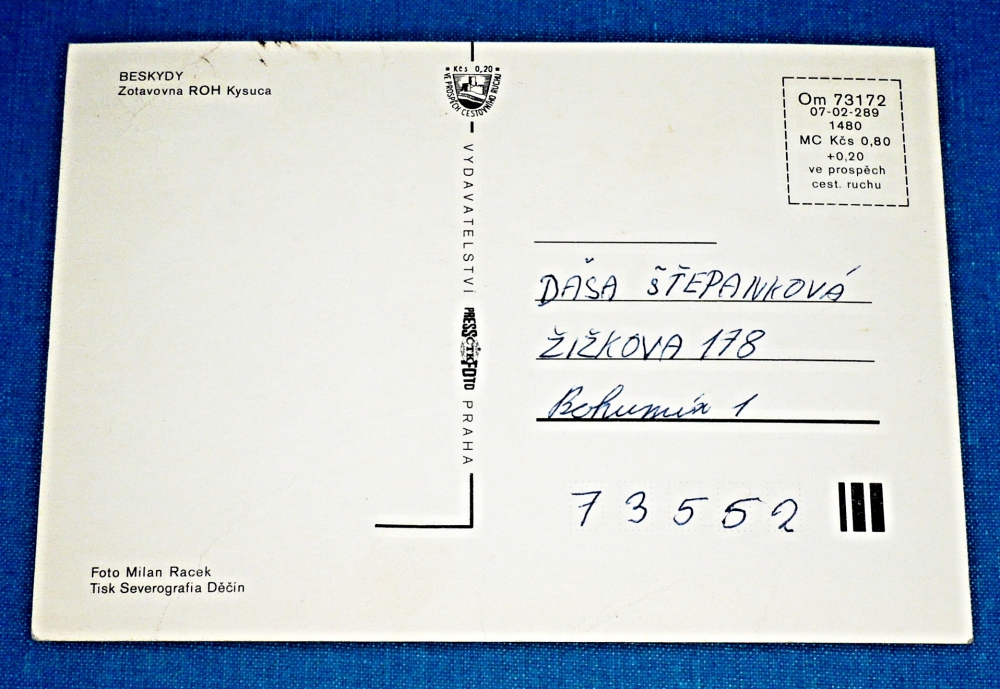 BESKYDY
Zotavovna ROH Kysuca
Kčs 0,20
VE PROSPĚCH CESTOVNÍHO RUCHU
VYDAVATELSTVÍ PRESSFOTO PRAHA
ČTK
Om 73172
07-02-289
1480
MC Kčs 0,80
+0,20
ve prospěch
cest. ruchu
DÁŠA ŠTĚPANKOVÁ
ŽIŽKOVA 178
Bohumín 1
73552
Foto Milan Racek
Tisk Severografia Děčín